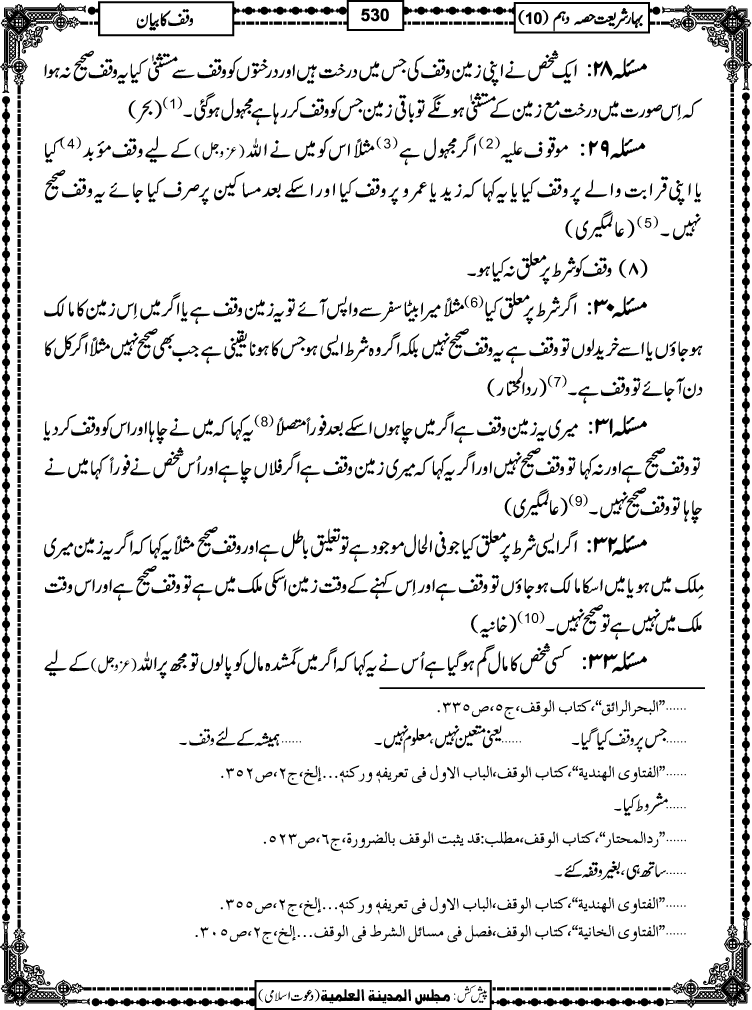 بہار شریعت حصہ دہم (10)
530
وقف کا بیان
مسئلہ ۲۸: ایک شخص نے اپنی زمین وقف کی جس میں درخت ہیں اور درختوں کو وقف سے مستثنیٰ کیا یہ وقف صحیح نہ ہوا
کہ اِس صورت میں درخت مع زمین کے مستثنیٰ ہونگے تو باقی زمین جس کو وقف کر رہا ہے مجہول ہوگئی۔(1) (بحر)
مسئلہ ۲۹: موقوف علیہ(2) اگر مجہول ہے(3) مثلاً اس کو میں نے اللہ (عزوجل) کے لیے وقف مؤبد(4) کیا
یا اپنی قرابت والے پر وقف کیا یا یہ کہا کہ زید یا عمرو پر وقف کیا اور اسکے بعد مساکین پر صرف کیا جائے یہ وقف صحیح
نہیں۔(5) (عالمگیری)
(۸) وقف کو شرط پر معلق نہ کیا ہو۔
مسئلہ ۳۰: اگر شرط پر معلق کیا(6) مثلاً میرا بیٹا سفر سے واپس آئے تو یہ زمین وقف ہے یا اگر میں اِس زمین کا مالک
ہو جاؤں یا اسے خرید لوں تو وقف ہے یہ وقف صحیح نہیں بلکہ اگر وہ شرط ایسی ہو جس کا ہونا یقینی ہے جب بھی صحیح نہیں مثلاً اگر کل کا
دن آجائے تو وقف ہے۔(7) (ردالمحتار)
مسئلہ ۳۱: میری یہ زمین وقف ہے اگر میں چاہوں اسکے بعد فوراً متصلاً(8) یہ کہا کہ میں نے چاہا اور اس کو وقف کر دیا
تو وقف صحیح ہے اور نہ کہا تو وقف صحیح نہیں اور اگر یہ کہا کہ میری زمین وقف ہے اگر فلاں چاہے اور اُس شخص نے فوراً کہا میں نے
چاہا تو وقف صحیح نہیں۔(9) (عالمگیری)
مسئلہ ۳۲: اگر ایسی شرط پر معلق کیا جو فی الحال موجود ہے تو تعلیق باطل ہے اور وقف صحیح مثلاً یہ کہا کہ اگر یہ زمین میری
مِلک میں ہو یا میں اسکا مالک ہو جاؤں تو وقف ہے اور اِس کہنے کے وقت زمین اسکی ملک میں ہے تو وقف صحیح ہے اور اس وقت
ملک میں نہیں ہے تو صحیح نہیں۔(10) (خانیہ)
مسئلہ ۳۳: کسی شخص کا مال گم ہو گیا ہے اُس نے یہ کہا کہ اگر میں گمشدہ مال کو پالوں تو مجھ پر اللہ (عزوجل) کے لیے
......"البحرالرائق"، کتاب الوقف، ج۵، ص۳۳۵.
......جس پر وقف کیا گیا۔ ......یعنی متعین نہیں، معلوم نہیں۔ ......ہمیشہ کے لئے وقف۔
......"الفتاوی الھندیة"، کتاب الوقف، الباب الاول فی تعریفہ ورکنہ...إلخ، ج۲، ص۳۵۲.
......مشروط کیا۔
......"ردالمحتار"، کتاب الوقف، مطلب: قد یثبت الوقف بالضرورة، ج۶، ص۵۲۳.
......ساتھ ہی، بغیر وقفہ کئے۔
......"الفتاوی الھندیة"، کتاب الوقف، الباب الاول فی تعریفہ ورکنہ...إلخ، ج۲، ص۳۵۵.
......"الفتاوی الخانیة"، کتاب الوقف، فصل فی مسائل الشرط فی الوقف...إلخ، ج۲، ص۳۰۵.
پیش کش: مجلس المدینة العلمیة (دعوت اسلامی)